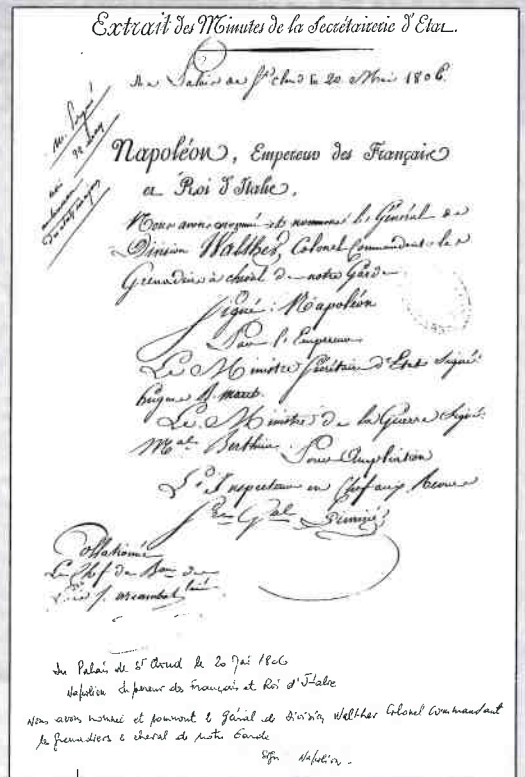 Extrait des Minutes de la Secrétairerie d'Etat.
Au Palais de St Cloud le 20 Mai 1806.
Napoléon, Empereur des Français
et Roi d'Italie,
Nous avons nommé et nommons le Général de
Division Walther, Colonel Commandant les
Grenadiers à cheval de notre Garde
Signé : Napoléon
Par l'Empereur
Le Ministre Secrétaire d'Etat Signé
hugues B. maret.
Le Ministre de la Guerre Signé.
Mal Berthier.
Pour Ampliation
L' Inspecteur en Chef aux Revues
Gal
Collationné
Le Chef de Bau de
du Palais de St Cloud le 20 Mai 1806
Napoléon Empereur des Français et Roi d'Italie
Nous avons nommé et le Général de Division Walther Colonel Commandant
les grenadiers à cheval de notre Garde
Signé Napoléon.